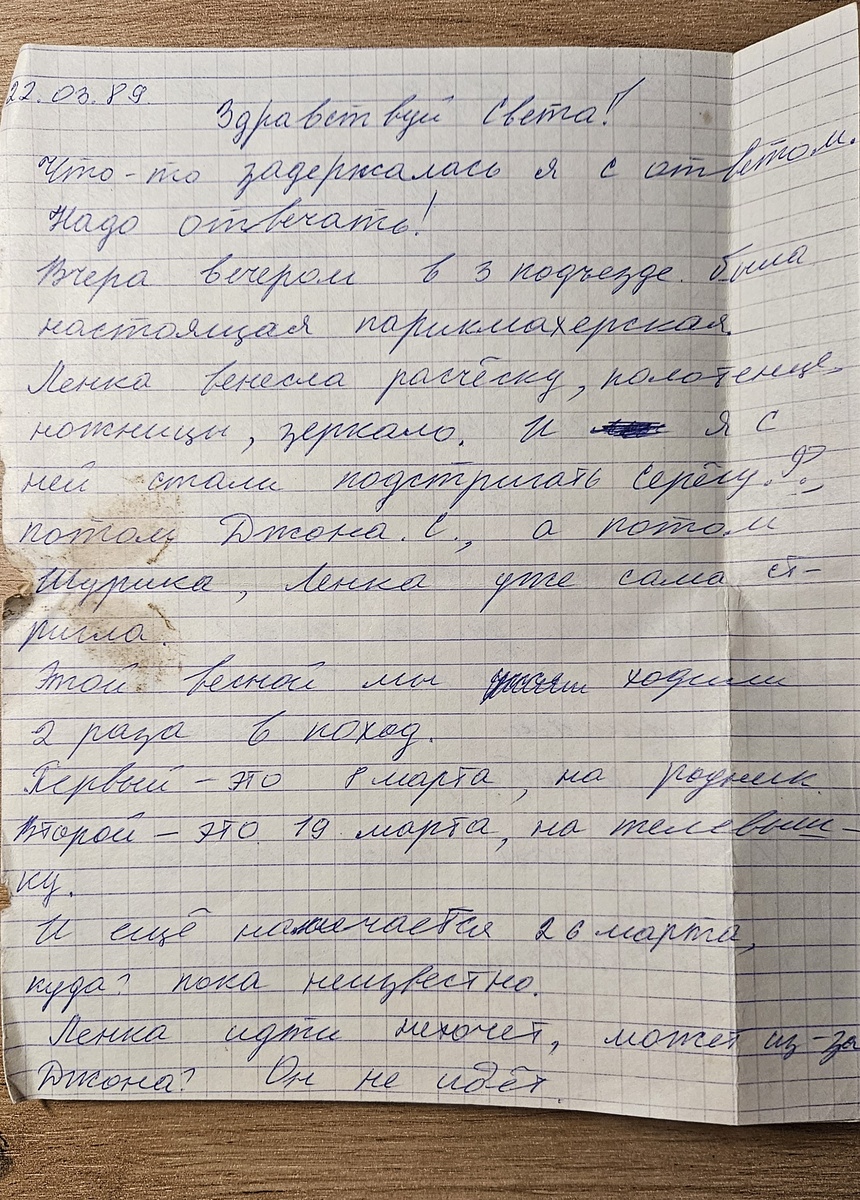 22.03.89.
Здравствуй Света!
Что-то задержалась я с ответом.
Надо отвечать!
Вчера вечером в 3 подъезде была
настоящая парикмахерская.
Ленка венесла расчёску, полотенце,
ножницы, зеркало. И я с
ней стали подстригать Серёгу.Р.,
потом Джона.С., а потом
Шурика, Ленка уже сама ст-
ригла.
Этой весной мы ходили
2 раза в поход.
Первый - это 8 марта, на родник.
Второй - это 19 марта, на телевыш-
ку.
И ещё 26 марта,
куда? пока неизвестно.
Ленка идти нехочет, может из-за
Джона? Он не идёт.